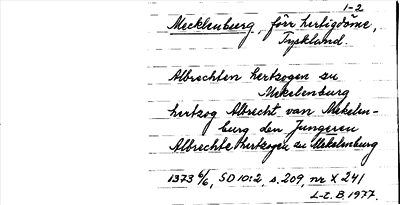 1-2
Mecklenburg, förr hertigdöme,
Tyskland.
Albrechten hertzogen zu
Mekelenburg
hertzog Albrecht van Mekelen-
burg den Jungeren
Albrechte hertzogen zu Mekelenburg
1373 6/6, SD 10:2, s. 209, nr X 241
L-E. B, 1977.